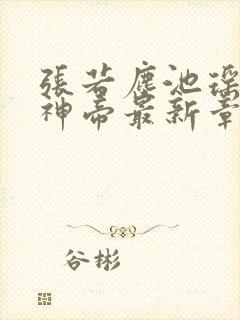 張若塵池瑤
神帝最新章
谷彬